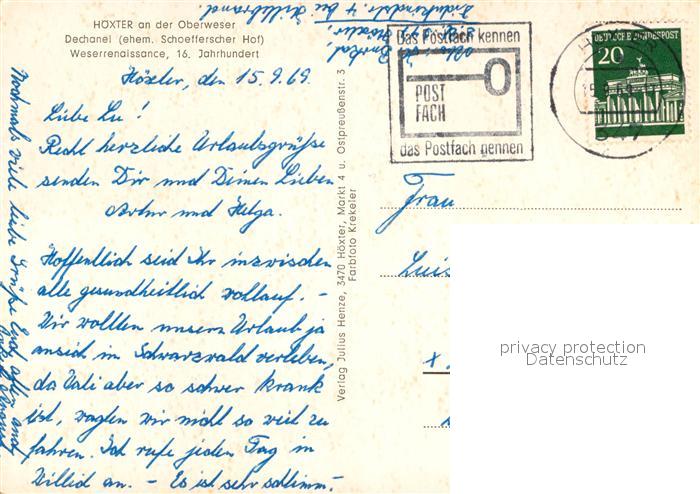 HÖXTER an der Oberweser
Dechanei (ehem. Schoefferscher Hof)
Weserrenaissance, 16. Jahrhundert
Höxter, den 15.9.69.
Liebe Lu!
Recht herzliche Urlaubsgrüsse
senden Dir und Deinen Lieben
Artur und Helga.
Hoffentlich seid Ihr inzwischen
alle gesundheitlich vollauf. –
Wir wollten unsern Urlaub ja
an sich im Schwarzwald verleben,
da Vati aber so schwer krank
ist, wagten wir nicht so weit zu
fahren. Ich rufe jeden Tag in
Willid an. – Es ist sehr schlimm. –
Nochmals viele liebe Grüße Euch allen
Verlag Julius Henze, 3470 Höxter, Markt 4 u. Ostpreußenstr. 3
Farbfoto Krekeler
Das Postfach kennen
POST
FACH
das Postfach nennen
DEUTSCHE BUNDESPOST
20
Frau
Luis
privacy protection
Datenschutz